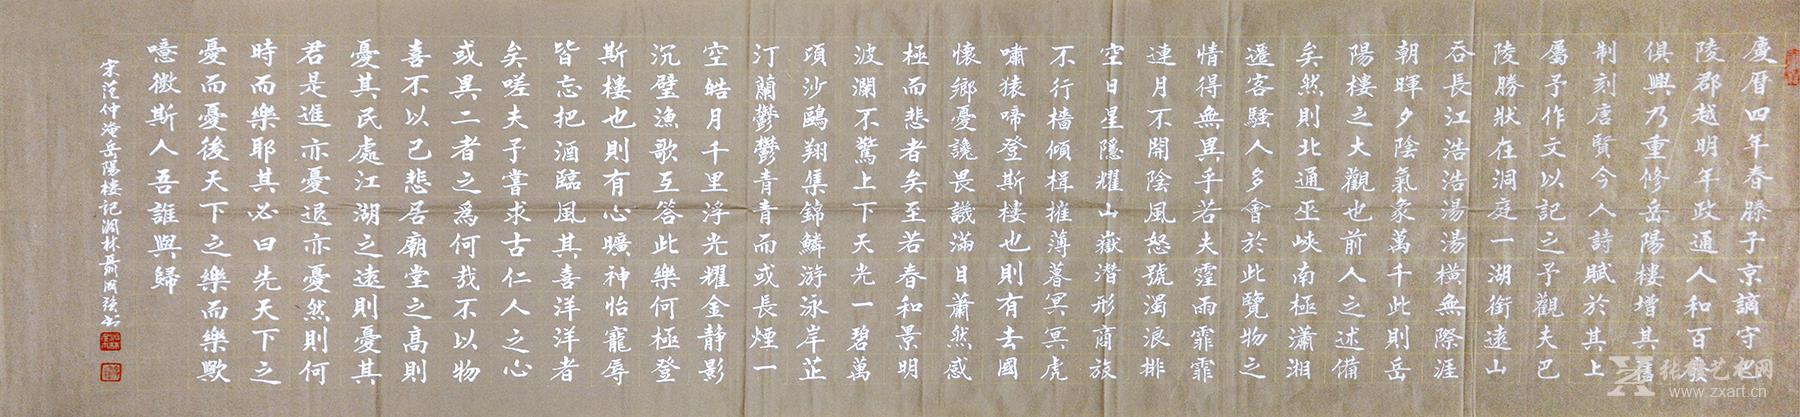 慶曆四年春滕子京謫守巴
陵郡越明年政通人和百廢
俱興乃重修岳陽樓增其舊
制刻唐賢今人詩賦於其上
屬予作文以記之予觀夫巴
陵勝狀在洞庭一湖銜遠山
吞長江浩浩湯湯橫無際涯
朝暉夕陰氣象萬千此則岳
陽樓之大觀也前人之述備
矣然則北通巫峽南極瀟湘
遷客騷人多會於此覽物之
情得無異乎若夫霪雨霏霏
連月不開陰風怒號濁浪排
空日星隱耀山嶽潛形商旅
不行檣傾楫摧薄暮冥冥虎
嘯猿啼登斯樓也則有去國
懷鄉憂讒畏譏滿目蕭然感
極而悲者矣至若春和景明
波瀾不驚上下天光一碧萬
頃沙鷗翔集錦鱗游泳岸芷
汀蘭鬱鬱青青而或長煙一
空皓月千里浮光耀金靜影
沉璧漁歌互答此樂何極登
斯樓也則有心曠神怡寵辱
皆忘把酒臨風其喜洋洋者
矣嗟夫予嘗求古仁人之心
或異二者之為何哉不以物
喜不以己悲居廟堂之高則
憂其民處江湖之遠則憂其
君是進亦憂退亦憂然則何
時而樂耶其必曰先天下之
憂而憂後天下之樂而樂歟
噫微斯人吾誰與歸
宋范仲淹岳陽樓記潤林聶國強书
张雄艺术网
www.zxart.cn